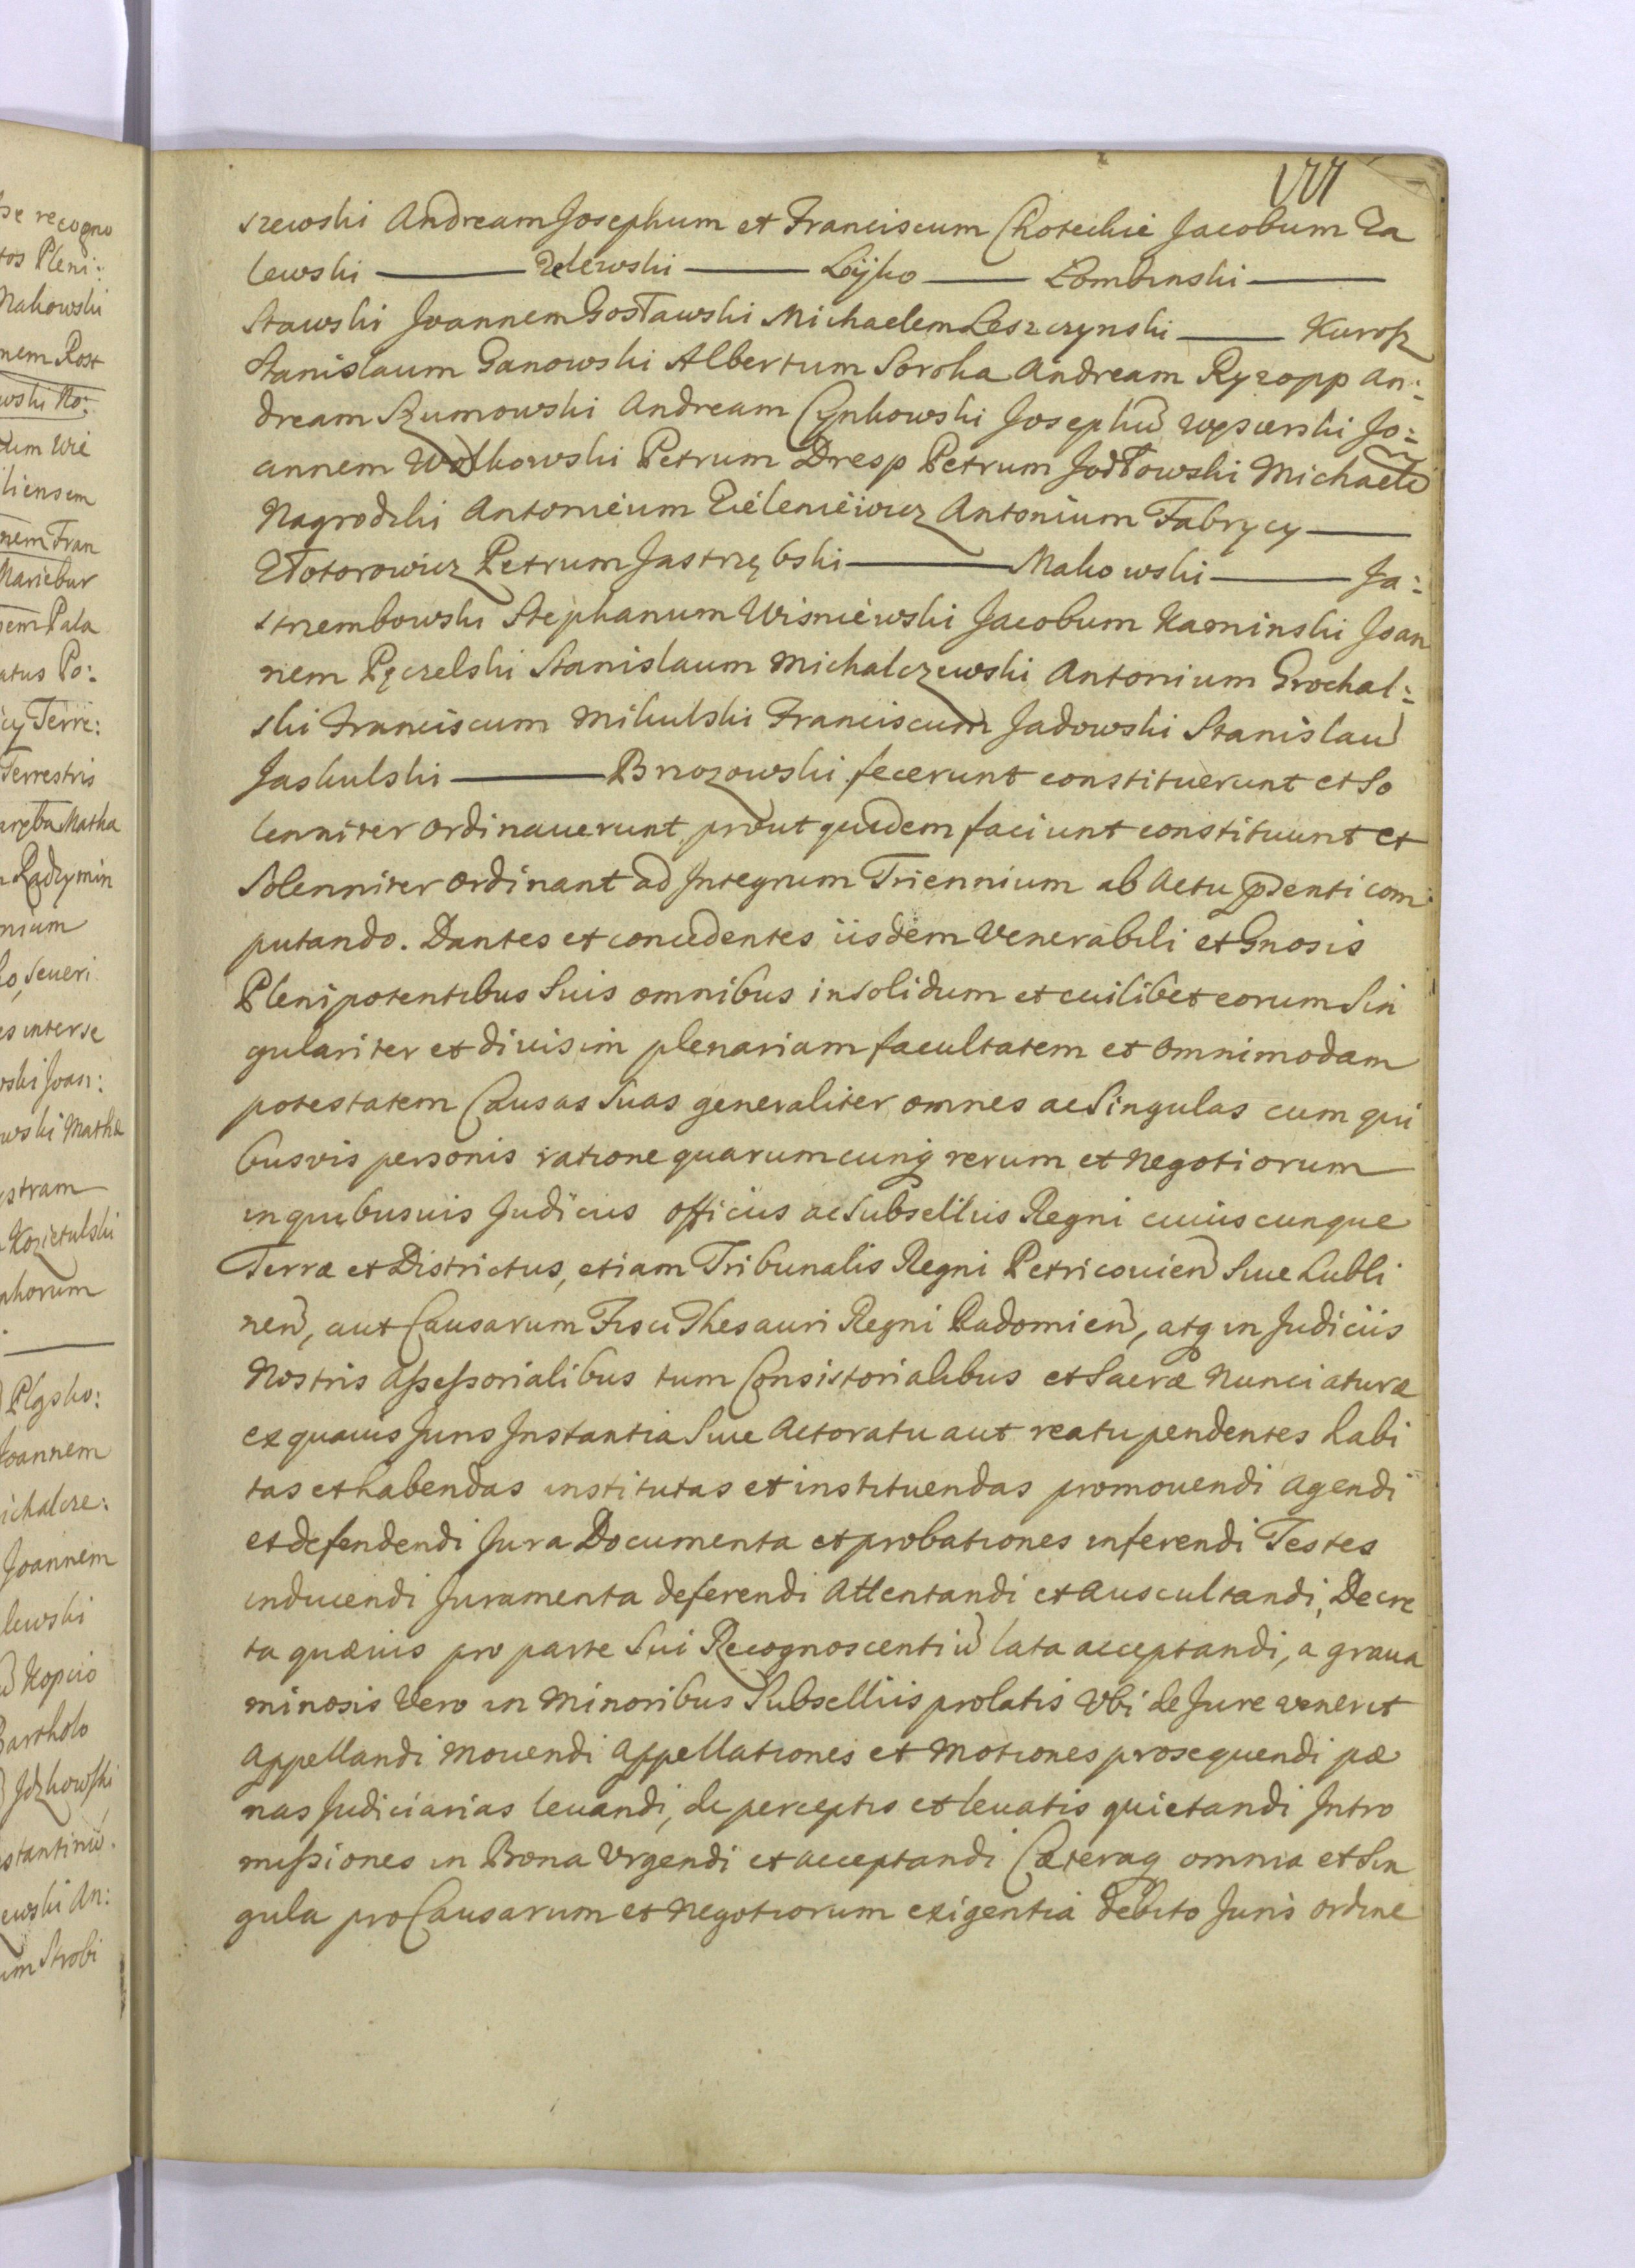 szewski Andream Josephum et Franciscum Choteckie Jacobum Za
lewski ——— Zelewski ——— Łÿko ——— Łombinski ———
Stawski Joannem Gosławski Michaelem Leszczynski ——— Kurosz
Stanislaum Ganowski Albertum Soroka Andream Ryzopp An:
dream Szumowski Andream Cynkowski Josephũ Węsierski Jo:
annem Wolkowski Petrum Dresp Petrum Jodłowski Michaelē
Nagrodzki Antonieum Zieleniewicz Antonium Fabrycy ———
Złotorowicz Petrum Jastrzębski ——— Makowski ——— Ja:
strzembowski Stephanum Wisniewski Jacobum Kaminski Joan
nem Pęczelski Stanislaum Michalczewski Antonium Grochal:
ski Franciscum Mikulski Franciscum Jadowski Stanislaũ
Jaskulski ——— Brzozowski fecerunt constituerunt et So
lenniter ordinauerunt, prout quidem faciunt constituunt et
Solenniter ordinant ad Integrum Triennium ab Actu pñsenti com:
putando. Dantes et concedentes iisdem Venerabili et Gnosis
Plenipotentibus Suis omnibus in solidum et cuilibet eorum Sin
gulariter et diuisim plenariam facultatem et omnimodam
potestatem Causas Suas generaliter omnes ac Singulas cum qui
busvis personis ratione quarumcunq rerum et Negotiorum
in quibusuis Judiciis officiis ac Subselliis Regni cuiuscunque
Terræ et Districtus, etiam Tribunalis Regni Petricouien Siue Lubli
nen, aut Causarum Fisci Thesauri Regni Radomien, atq in Judiciis
Nostris Assessorialibus tum Consistorialibus et Sacræ Nunciaturæ
ex quauis Juris Instantia Siue Actoratu aut reatu pendentes habi
tas et habendas institutas et instituendas promouendi Agendi
et defendendi Jura Documenta et probationes inferendi Testes
inducendi Juramenta deferendi Attentandi et Auscultandi, Decre
ta quæuis pro parte Sui Recognoscentiũ lata acceptandi, a graua
minosis Vero in Minoribus Subselliis prolatis Vbi de Jure venerit
Appellandi Mouendi Appellationes et Motiones prosequendi pæ
nas Judiciarias leuandi, de perceptis et leuatis quietandi Intro
missiones in Bona Vrgendi et acceptandi Cæteraq omnia et Sin
gula pro Causarum et Negotiorum exigentia debito Juris ordine